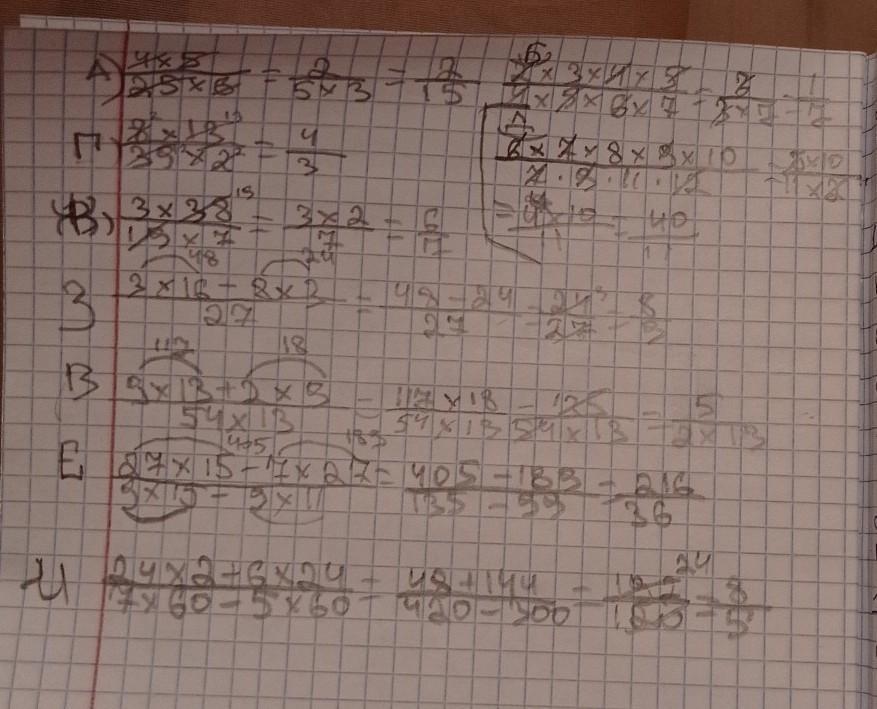 А) 4×5/25×6 = 2/5×3 = 2/15
Б) 2×3×4×5/4×5×6×7 = 2/2×7 = 1/7
Г 8×13/39×2 = 4/3
Д 6×7×8×9×10/7·9·11·12 = 8×10/11×2
= 4×10/11 = 40/11
В) 3×38/19×7 = 3×2/7 = 6/7
48 24
З 3×16-8×3/27 = 48-24/27 = 24/27 = 8/9
117 18
В 9×13+2×9/54×13 = 117×18/54×13 = 135/54×13 = 5/2×13
405 189
Е 27×15-7×27/9×15-9×11 = 405-189/135-99 = 216/36
И 24×2+6×24/7×60-5×60 = 48+144/420-300 = 192/120 = 8/5
24